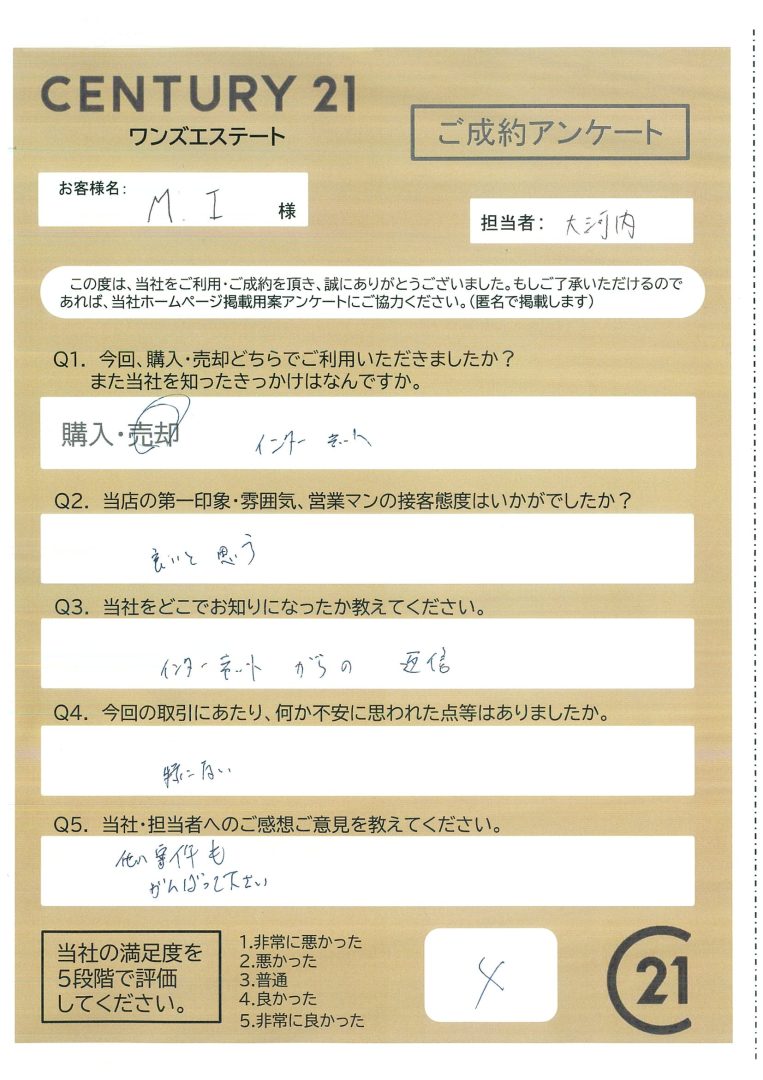 CENTURY 21
ワンズエステート
ご成約アンケート
お客様名:
M. I 様
担当者: 大河内
この度は、当社をご利用・ご成約を頂き、誠にありがとうございました。もしご了承いただけるので
あれば、当社ホームページ掲載用案アンケートにご協力ください。(匿名で掲載します)
Q1. 今回、購入・売却どちらでご利用いただきましたか?
また当社を知ったきっかけはなんですか。
購入・売却 インターネット
Q2. 当店の第一印象・雰囲気、営業マンの接客態度はいかがでしたか?
良いと思う
Q3. 当社をどこでお知りになったか教えてください。
インターネットからの 返信
Q4. 今回の取引にあたり、何か不安に思われた点等はありましたか。
特にない
Q5. 当社・担当者へのご感想ご意見を教えてください。
案件も
がんばって下さい
当社の満足度を
5段階で評価
してください。
1.非常に悪かった
2.悪かった
3.普通
4.良かった
5.非常に良かった
4
C21